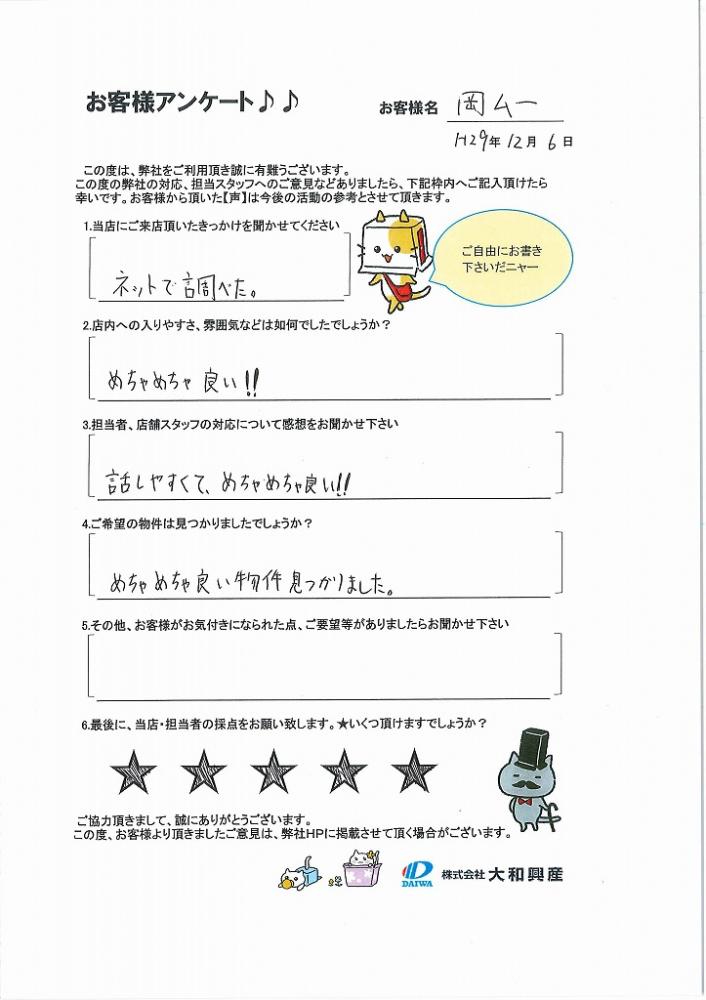 お客様アンケート♪♪
お客様名 岡ムー
H29年12月6日
この度は、弊社をご利用頂き誠に有難うございます。
この度の弊社の対応、担当スタッフへのご意見などありましたら、下記枠内へご記入頂けたら
幸いです。お客様から頂いた【声】は今後の活動の参考とさせて頂きます。
1.当店にご来店頂いたきっかけを聞かせてください
ネットで調べた。
ご自由にお書き
下さいだニャー
2.店内への入りやすさ、雰囲気などは如何でしたでしょうか？
めちゃめちゃ良い!!
3.担当者、店舗スタッフの対応について感想をお聞かせ下さい
話しやすくて、めちゃめちゃ良い!!
4.ご希望の物件は見つかりましたでしょうか？
めちゃめちゃ良い物件見つかりました。
5.その他、お客様がお気付きになられた点、ご要望等がありましたらお聞かせ下さい
6.最後に、当店・担当者の採点をお願い致します。★いくつ頂けますでしょうか？
ご協力頂きまして、誠にありがとうございます。
この度、お客様より頂きましたご意見は、弊社HPに掲載させて頂く場合がございます。
DAIWA 株式会社 大和興産